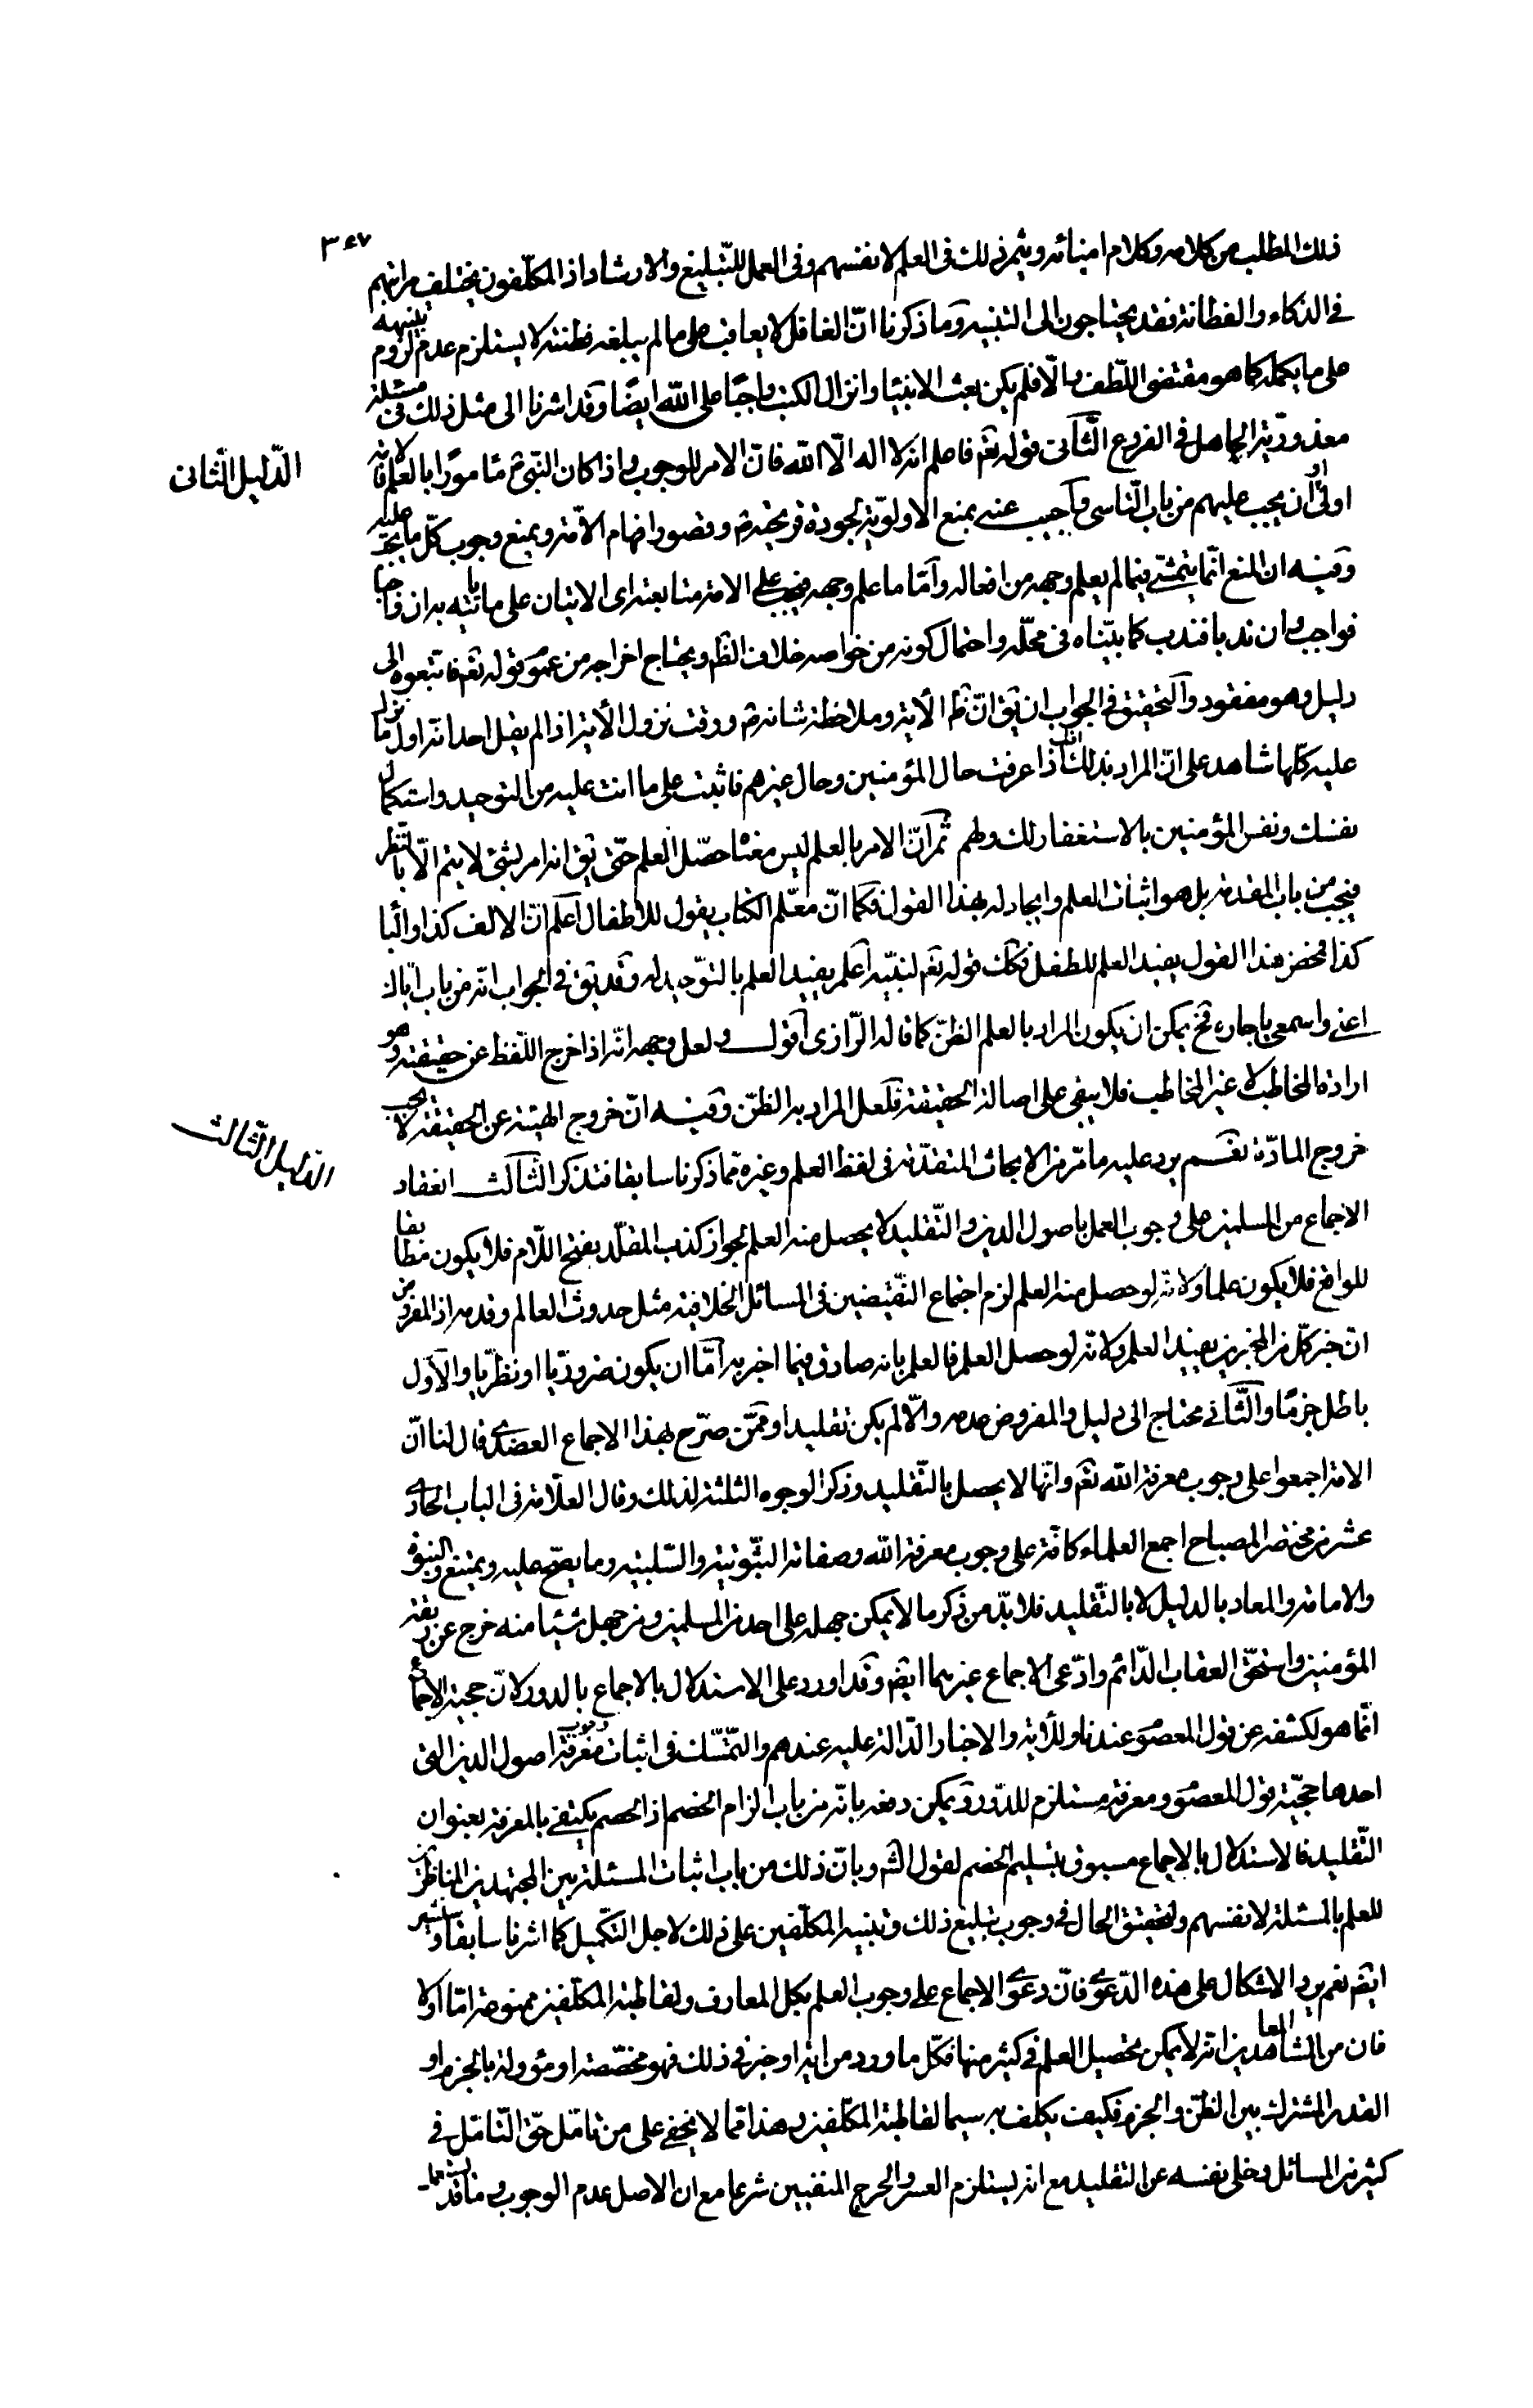 ٣٤٧
ذلك المطلب من كلامه وكلام امنائه ويثمر ذلك فى العلم لانفسهم وفى العمل للتّبليغ والارشاد اذ المكلّفون يختلف مراتبهم
فى الذكاء والفطانة فقد يحتاجون الى التنبيه وما ذكرنا انّ الغافل لا يعاقب على ما لم يبلغه فطنته لا يستلزم عدم لزوم تنبيهه
على ما يكمله كما هو مقتضى اللّطف والّا فلم يكن بعث الانبيا وانزال الكتب واجبًا على اللّه ايضًا وقد اشرنا الى مثل ذلك فى مسئلة
معذوريّة الجاهل فى الفروع الثّانى قوله تعم فاعلم انه لا اله الّا اللّه فانّ الامر للوجوب واذا كان النّبىّ مامورًا بالعلم فامّته
الدّليل الثّانى
اولى او ان يجب عليهم من باب التّاسى واجيب عنه بمنع الاولويّة لجودة قريحته وقصور افهام الامّة وبمنع وجوب كلّ ما يجب عليه
وفيه ان المنع انّما يتمشّى فيما لم يعلم وجهه من افعاله وامّا ما علم وجهه فيجب على الامة متابعته اى الاتيان على ما ياتيه به ان واجبا
فواجب وان ندبا فندب كما بيّنّاه فى محلّه واحتمال كونه من خواصه خلاف الظ ويحتاج اخراجه من عموم قوله تعم فاتّبعوه الى
دليل وهو مفقود والتحقيق فى الجواب ان يق انّ ظ الاية وملاحظة شانه ووقت نزول الاية اذ لم يقل احد انّه اول ما نزل
عليه كلّها شاهد على انّ المراد بذلك انك اذا عرفت حال المؤمنين وحال غيرهم فاثبت على ما انت عليه من التوحيد واستكمال
نفسك ونفس المؤمنين بالاستغفار لك ولهم ثم انّ الامر بالعلم ليس معناه حصّل العلم حتّى يق انه امر بشئ لا يتم الّا بالنظر
فيجب من باب المقدمة بل هو اثبات العلم وايجاد له بهذا القول فكما انّ معلّم الكتاب يقول للاطفال اعلم انّ الالف كذا والبا
كذا فمحض هذا القول يفيد العلم للطفل فكك قوله تعم لنبيّه اعلم يفيد العلم بالتوحيد له وقد يق فى الجواب انّه من باب ايّاك
اعنى واسمعى يا جاره فح يمكن ان يكون المراد بالعلم الظنّ كما قاله الرّازى اقول ولعل وجهه انّه اذا خرج اللّفظ عن حقيقته وهو
ارادة المخاطب لا غير المخاطب فلا يبقى على اصالة الحقيقة فلعل المراد به الظنّ وفيه انّ خروج الهيئة عن الحقيقة لا يوجب
خروج المادّة نعم يرد عليه ما مرّ من الابحاث المتقدّمة فى لفظ العلم وغيره مما ذكرنا سابقا فتذكر الثّالث انعقاد
الدّليل الثّالث
الاجماع من المسلمين على وجوب العمل باصول الدين والتّقليد لا يحصل منه العلم لجواز كذب المقلّد بفتح اللّام فلا يكون مطابقا
للواقع فلا يكون علما ولانّه لو حصل منه العلم لزم اجتماع النّقيضين فى المسائل الخلافية مثل حدوث العالم وقدمه اذ المفروض
انّ خبر كلّ من المخبرين يفيد العلم ولانّه لو حصل العلم فالعلم بانه صادق فيما اخبر به امّا ان يكون ضروريّا او نظريّا والاوّل
باطل جزمًا والثّانى محتاج الى دليل والمفروض عدمه والّا لم يكن تقليدا وممّن صرّح بهذا الاجماع العضدى قال لنا انّ
الامة اجمعوا على وجوب معرفة اللّه تعم وانّها لا يحصل بالتّقليد وذكر الوجوه الثلثة لذلك وقال العلّامة فى الباب الحادى
عشر من مختصر المصباح اجمع العلماء كافّة على وجوب معرفة اللّه وصفاته الثّبوتيّة والسّلبيّة وما يصحّ عليه ويمتنع والنبوة
والامامة والمعاد بالدليل لا بالتّقليد فلا بدّ من ذكر ما لا يمكن جهله على احد من المسلمين ومن جهل شيئا منه خرج عن ربقة
المؤمنين واستحقّ العقاب الدّائم وادّعى الاجماع غيرهما ايض وقد اورد على الاستدلال بالاجماع بالدور لانّ حجية الاجماع
انّما هو لكشفه عن قول المعصوم عندنا وللاية والاخبار الدّالة عليه عندهم والتمسّك فى اثبات وجوب معرفة اصول الدين التى
احدها حجيّة قول المعصوم ومعرفته مستلزم للدّور ويمكن دفعه بانّه من باب الزام الخصم اذ الخصم يكتفى بالمعرفة بعنوان
التّقليد فالاستدلال بالاجماع مسبوق بتسليم الخصم لقول الش وبانّ ذلك من باب اثبات المسئلة بين المجتهدين المناظرين
للعلم بالمسئلة لانفسهم ولتحقيق الحال فى وجوب تبليغ ذلك وتنبيه المكلّفين على ذلك لاجل التّكميل كما اشرنا سابقا وسنشير
ايض نعم يرد الاشكال على هذه الدّعوى فانّ دعوى الاجماع على وجوب العلم بكل المعارف ولقاطبة المكلّفين ممنوعة امّا اولا
فان من المشاهد المعاين انه لا يمكن تحصيل العلم فى كثير منها فكلّ ما ورد من اية او خبر فى ذلك فهو مخصّصة او مؤولة بالجزم او
القدر المشترك بين الظنّ والجزم فكيف يكلف به سيما لقاطبة المكلّفين وهذا ممّا لا يخفى على من تامّل حقّ التّامّل فى
كثير من المسائل وخلى نفسه عن التقليد مع انه يستلزم العسر والحرج المنفيين شرعا مع ان الاصل عدم الوجوب وما قد